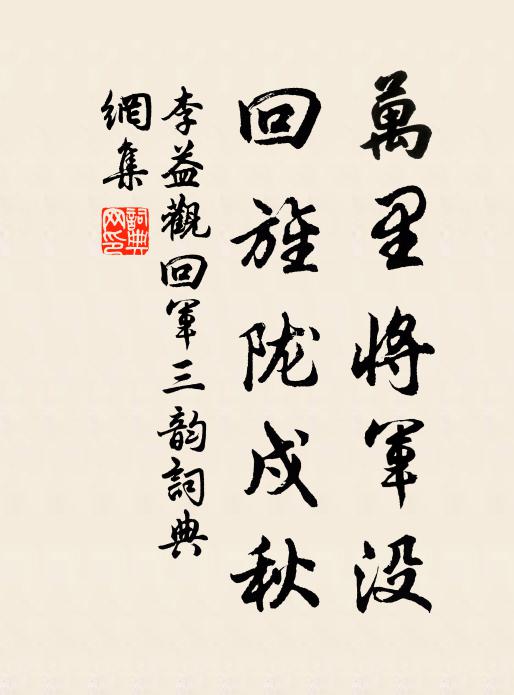 萬里將軍没
回旌陇戍秋
李益觀回軍三韵詞典
網集
詞典
网印